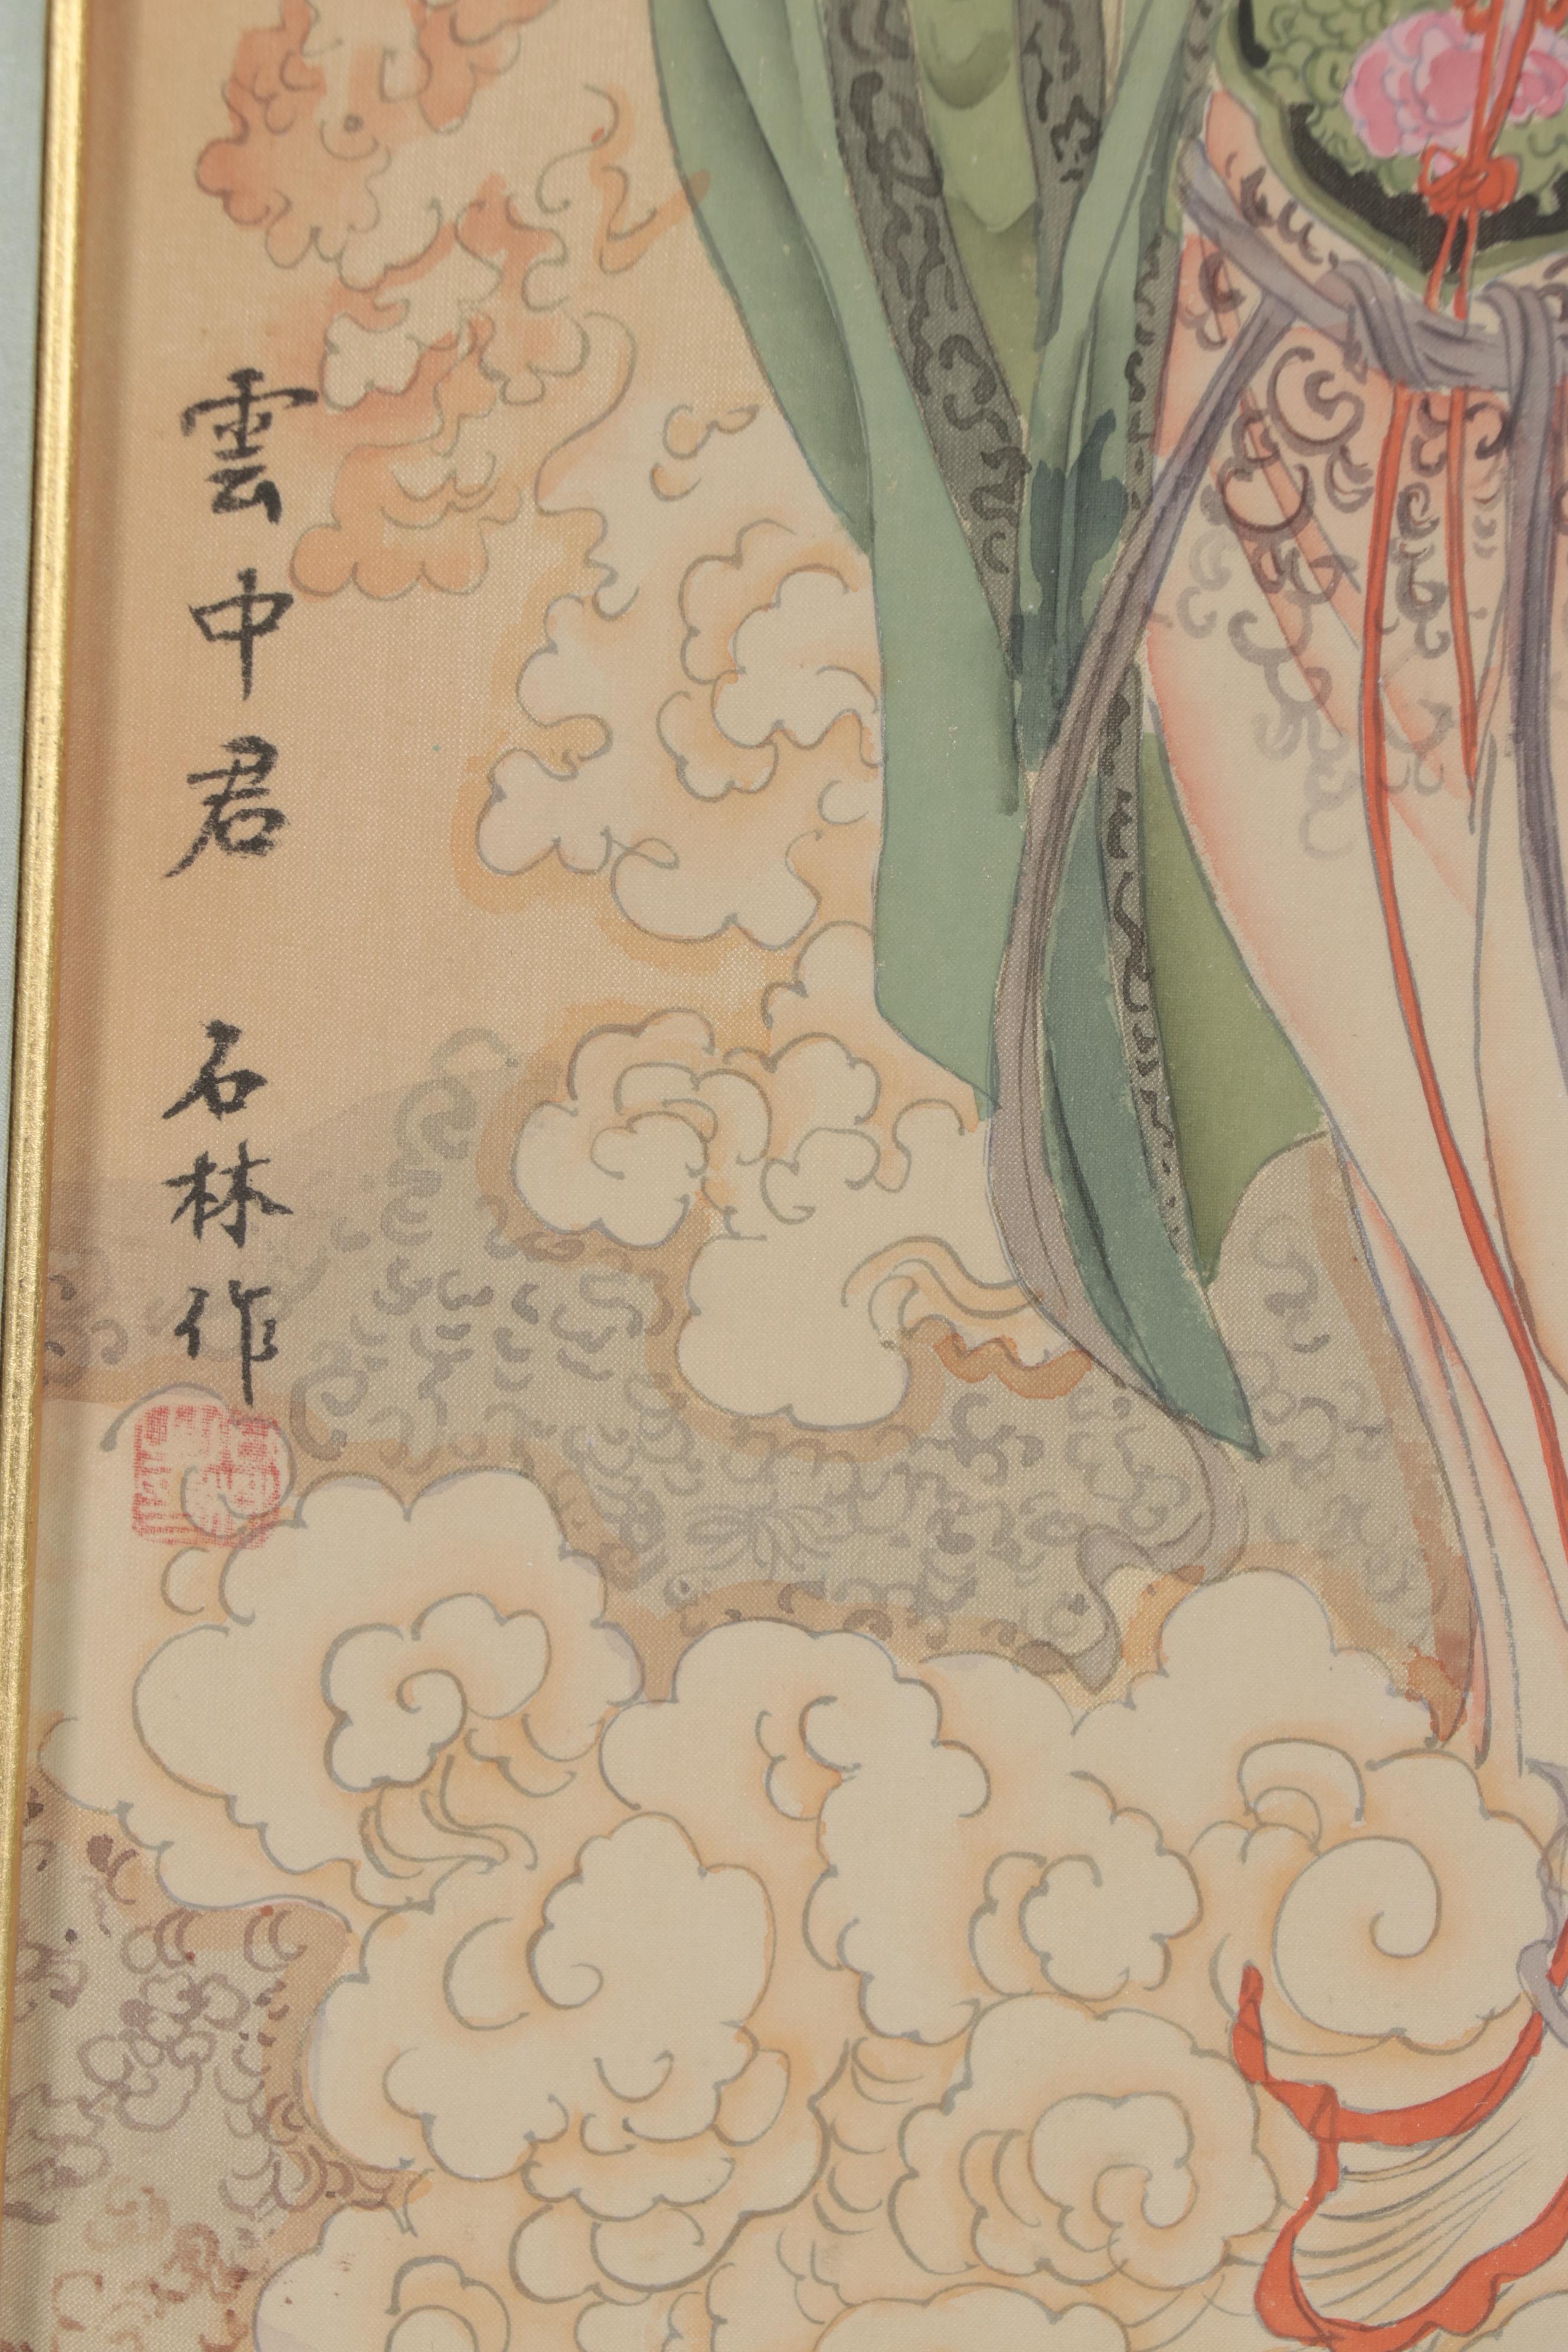 雲中君 石林作